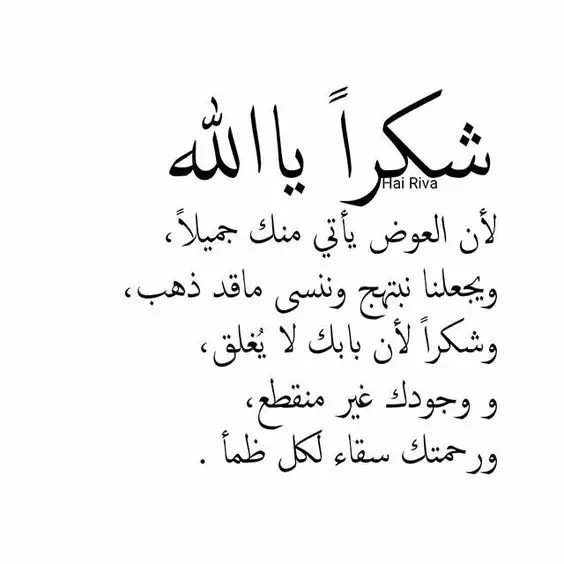 شكراً ياالله
Hai Riva
لأن العوض يأتي منك جميلاً،
ويجعلنا نبتهج وننسى ماقد ذهب،
وشكراً لأن بابك لا يُغلق،
و وجودك غير منقطع،
ورحمتك سقاء لكل ظمأ .